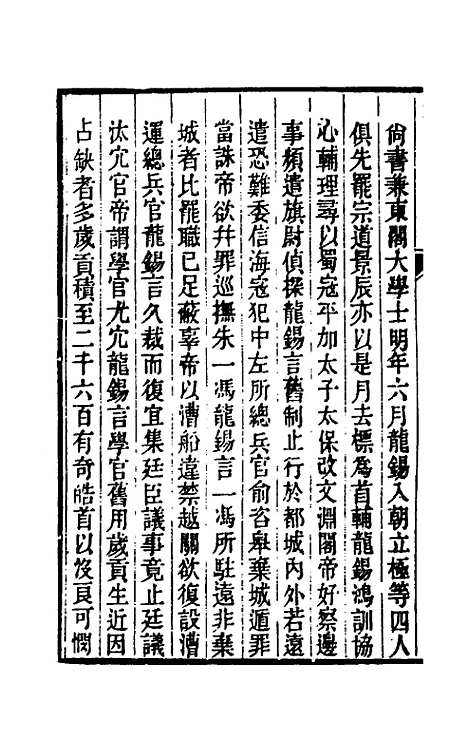 尙書兼東閣大學士明年六月龍錫入朝立極等四人
俱先罷宗道景辰亦以是月去標爲首輔龍錫鴻訓協
心輔理尋以蜀寇平加太子太保改文淵閣帝好察邊
事頻遣旗尉偵探龍錫言舊制止行於都城內外若遠
遣恐難委信海寇犯中左所總兵官俞咨皋棄城遁罪
當誅帝欲幷罪巡撫朱一馮龍錫言一馮所駐遠非棄
城者比罷職已足蔽辜帝以漕船違禁越關欲復設漕
運總兵官龍錫言久裁而復宜集廷臣議事竟止廷議
汰冗官帝謂學官尤冗龍錫言學官舊用歲貢生近因
占缺者多歲貢積至二千六百有奇皓首以歿良可憫